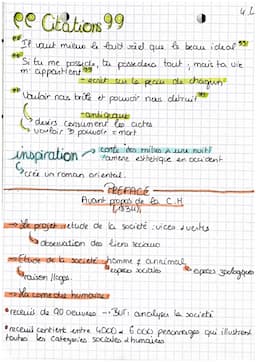 Citations
4.L
"Il vaut mieux le laid réel que le beau idéal"
"Si tu me possède, tu possedera tout, mais ta vie
m'appartient"
→ écrit sur la peau de chagrin
"Vouloir nous brûle et pouvoir nous détruit"
antiquaire
→ désirs consument les actes
→ vouloir & pouvoir = mort
inspiration → conte des milles & une nuit
ramène esthétique en occident
crée un roman oriental.
PREFACE
Avant propos de la C.H
(1834)
→ Le projet : étude de la société : vices & vertus
observation des liens sociaux
→ Etude de la société : homme & annimal
espèces sociales
espèces zoologiques
raison / logos.
→ La comédie humaine
• recueil de 90 oeuvres → BUT : analyser la société
• recueil contient entre 4000 & 6 000 personnages qui illustrent
toutes les catégories sociales & humaines